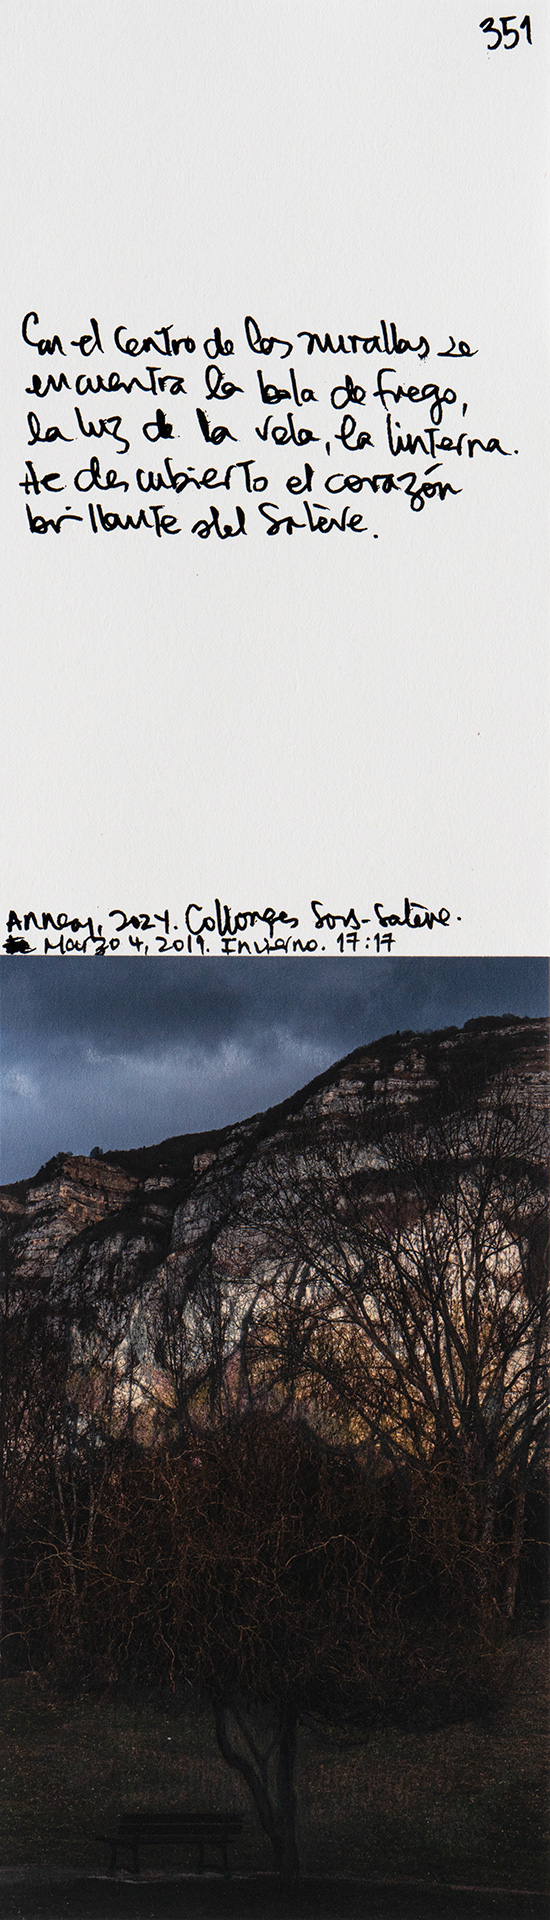 351
En el centro de las murallas se
encuentra la bola de fuego,
la luz de la vela, la linterna.
He descubierto el corazón
brillante del Salève.
Annecy, 2024. Collonges Sous-Salève.
Marzo 4, 2019. Invierno. 17:17